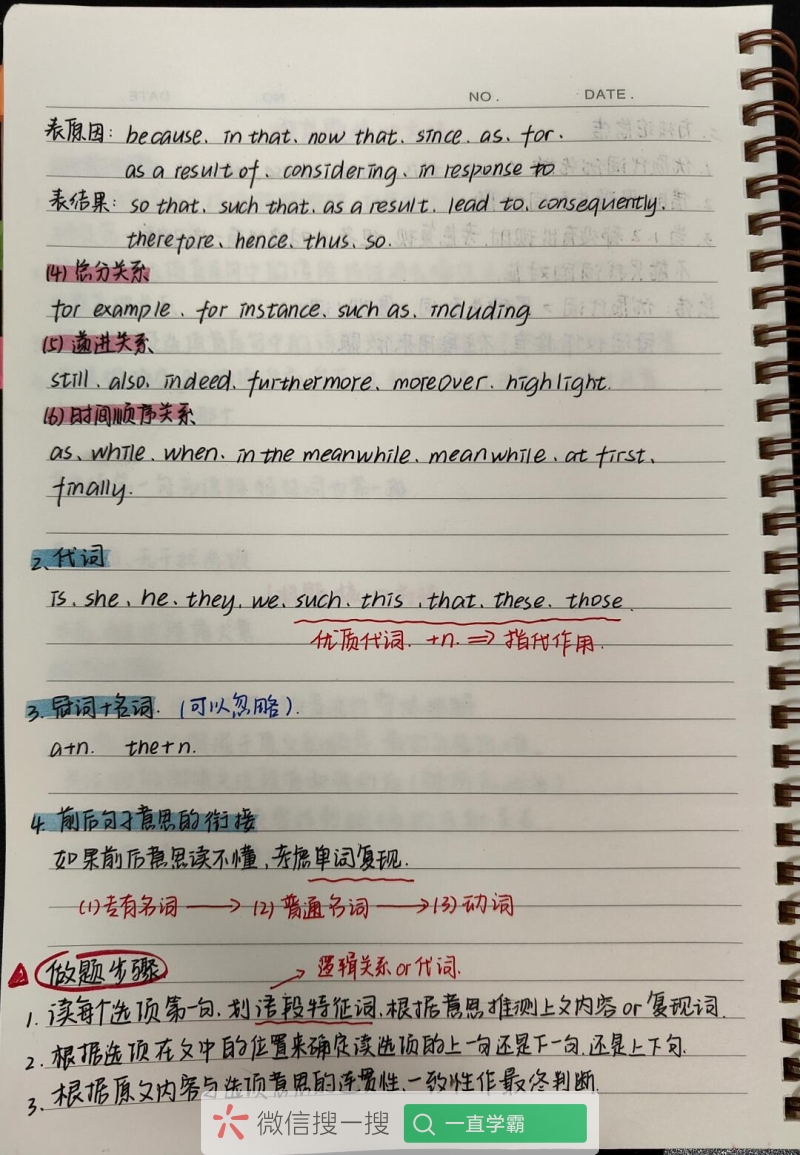 NO. DATE.
表原因: because、in that、now that、since、as、for.
as a result of、considering、in response to
表结果: so that、such that、as a result、lead to、consequently、
therefore、hence、thus、so.
(4) 总分关系
for example、for instance、such as、including
(5) 递进关系
still、also、indeed、furthermore、moreover、highlight.
(6) 时间顺序关系
as、while、when、in the meanwhile、meanwhile、at first、
finally.
2、代词
Is、she、he、they、we、such、this、that、these、those.
优质代词. +n. ⇒ 指代作用.
3. 冠词+名词. (可以忽略).
a+n. the+n.
4. 前后句子意思的衔接
如果前后意思读不懂,考虑单词复现.
(1)专有名词 → (2)普通名词 → (3)动词
做题步骤
逻辑关系or代词.
1. 读每个选项第一句,划语段特征词,根据意思推测上文内容or复现词.
2. 根据选项在文中的位置来确定读选项的上一句还是下一句,还是上下句.
3. 根据原文内容与选项意思的连贯性、一致性作最终判断.
微信搜一搜 一直学霸